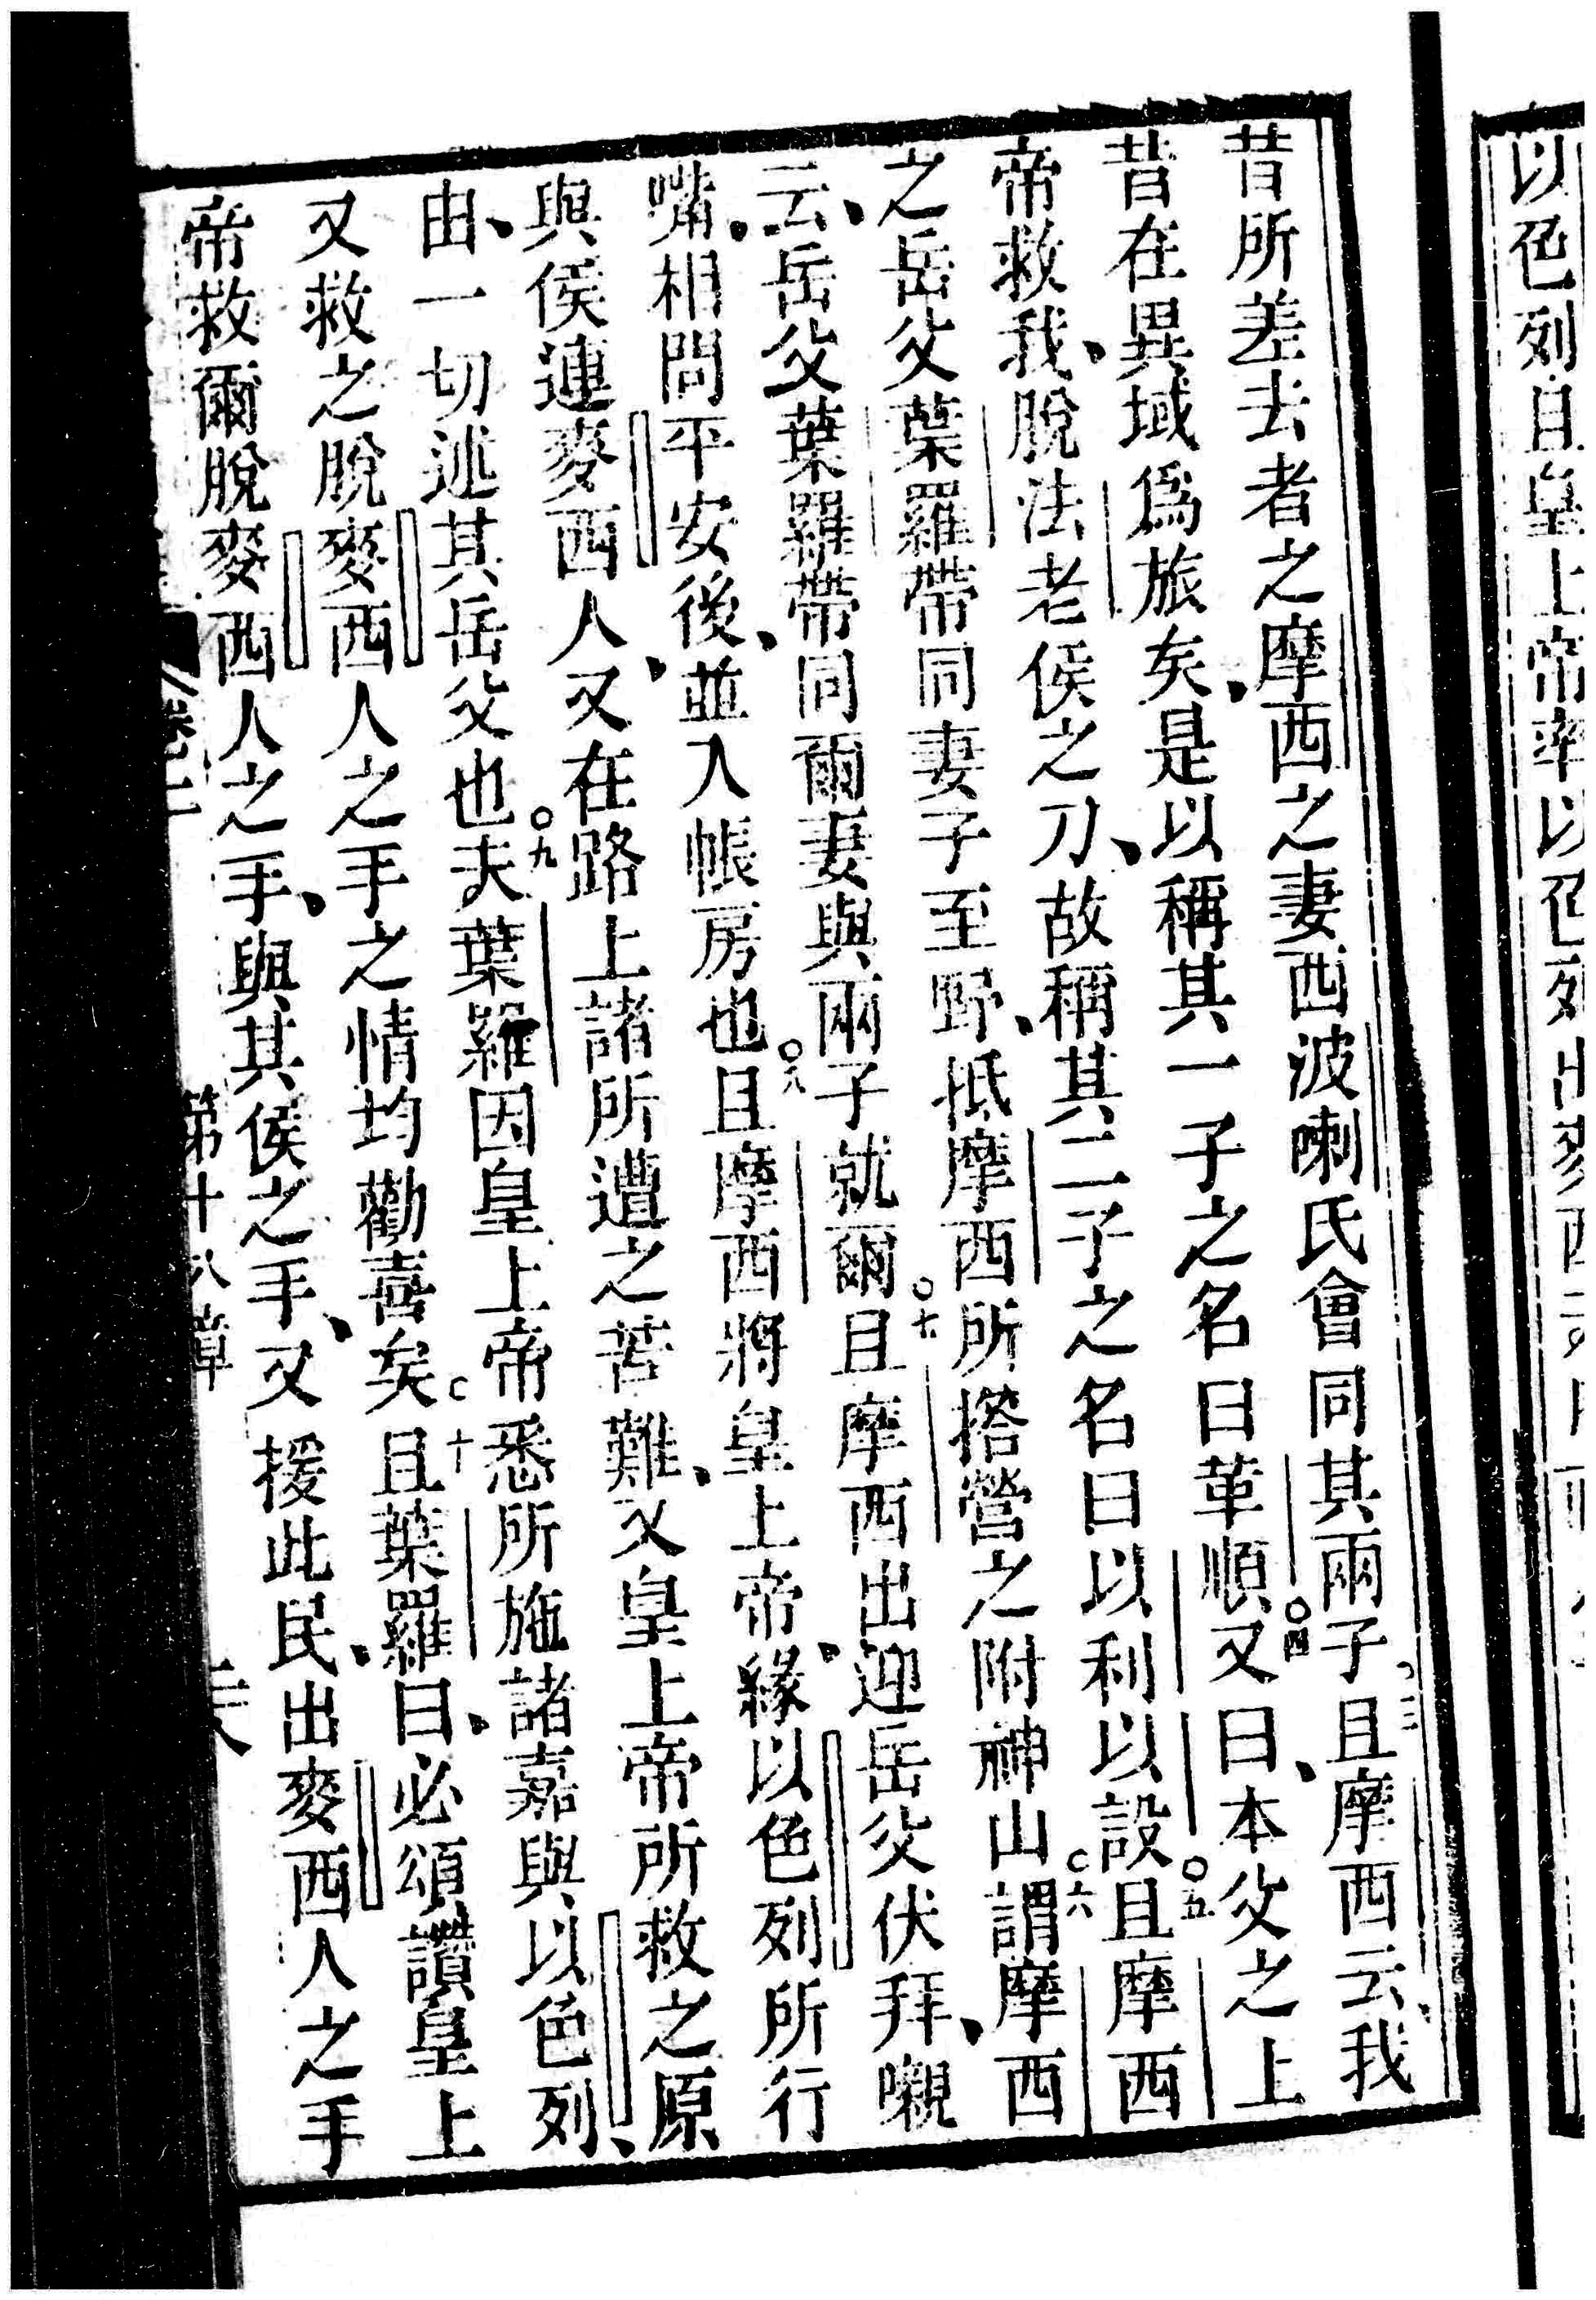 以色列自皇上帝率以色列出麥西
昔所差去者之摩西之妻西波喇氏會同其兩子○三且摩西云我
昔在異域爲旅矣、是以稱其一子之名曰革順○四又曰、本父之上
帝救我、脫法老侯之刀、故稱其二子之名曰以利以設○五且摩西
之岳父葉羅帶同妻子至野、抵摩西所搭營之附神山○六謂摩西
云、岳父葉羅帶同爾妻與兩子就爾○七且摩西出迎岳父伏拜、嚫
嘴、相問平安後、並入帳房也○八且摩西將皇上帝、緣以色列所行
與侯連麥西人、又在路上諸所遭之苦難、又皇上帝所救之原
由、一切述其岳父也○九夫葉羅因皇上帝悉所施諸嘉與以色列、
又救之脫麥西人之手之情均勸喜矣○十且葉羅曰、必頌讚皇上
帝救爾脫麥西人之手、與其侯之手、又援此民、出麥西人之手
卷二 第十八章